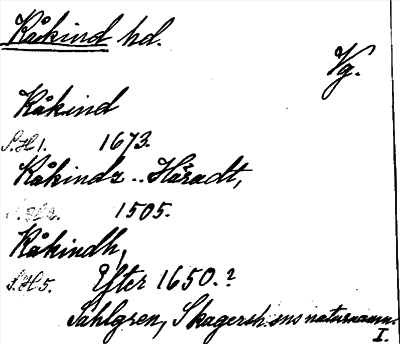 Kåkind hd.
Vg.
Kåkind
S.H 1. 1673.
Kåkindz.. Häradt,
1505.
Kåkindh,
S.H 5. Efter 1650.?
Sahlgren, Skagersh:sns naturnamn.
I.